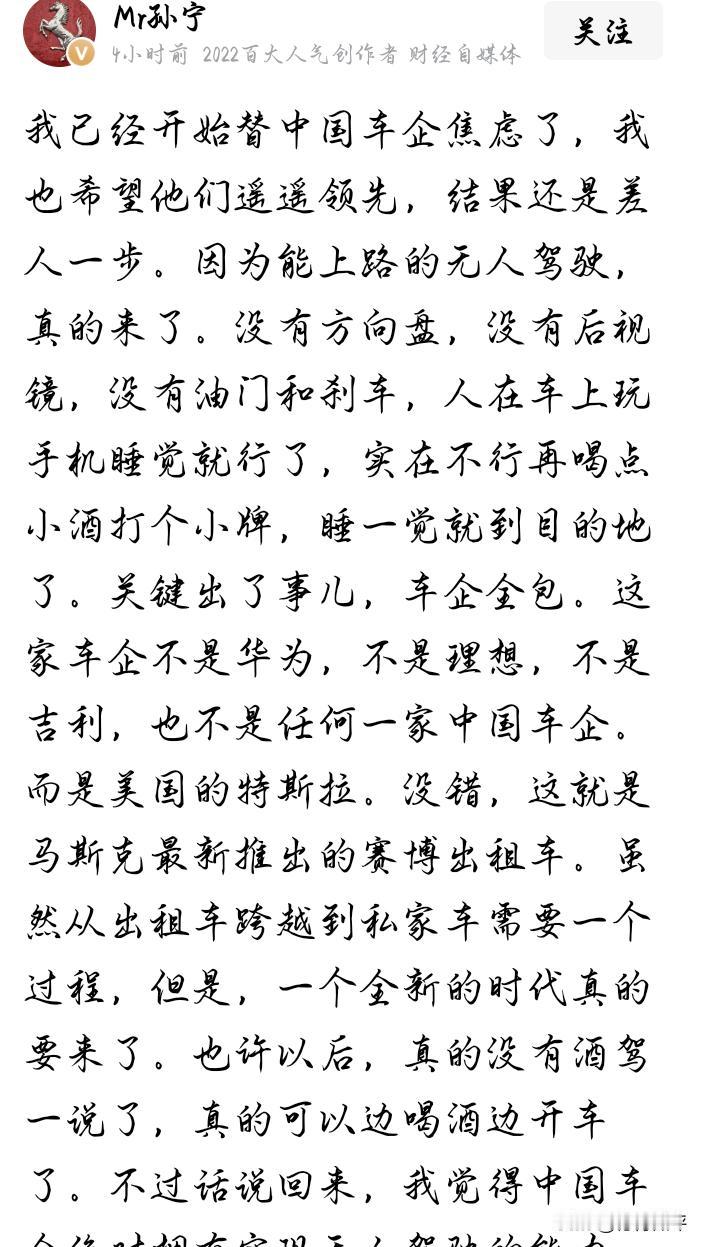 Mr孙宁
关注
4小时前 2022百大人气创作者 财经自媒体
我已经开始替中国车企焦虑了，我
也希望他们遥遥领先，结果还是差
人一步。因为能上路的无人驾驶，
真的来了。没有方向盘，没有后视
镜，没有油门和刹车，人在车上玩
手机睡觉就行了，实在不行再喝点
小酒打个小牌，睡一觉就到目的地
了。关键出了事儿，车企全包。这
家车企不是华为，不是理想，不是
吉利，也不是任何一家中国车企。
而是美国的特斯拉。没错，这就是
马斯克最新推出的赛博出租车。虽
然从出租车跨越到私家车需要一个
过程，但是，一个全新的时代真的
要来了。也许以后，真的没有酒驾
一说了，真的可以边喝酒边开车
了。不过话说回来，我觉得中国车